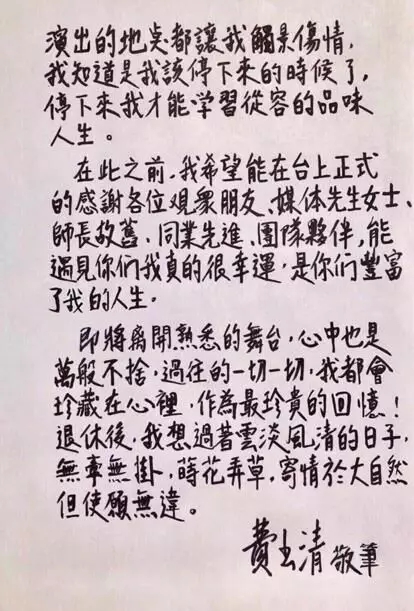 演出的地点都讓我觸景傷情,
我知道是我該停下來的時候了,
停下來我才能学習從容的品味
人生。
在此之前,我希望能在台上正式
的感謝各位観衆朋友、媒体先生女士、
師長故舊、同業先進、團隊夥伴,能
遇見你们我真的很幸運,是你们豐富
了我的人生。
即將离開熟悉的舞台,心中也是
萬般不捨,過往的一切一切,我都會
珍藏在心裡,作為最珍貴的回憶!
退休後,我想過著雲淡風清的日子,
無牽無掛,蒔花弄草,寄情於大自然
但使願無違。
費玉清 敬筆